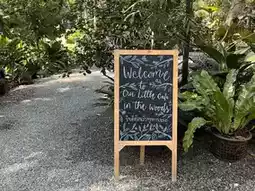 Welcome
to
Our Little Cafe
in the woods